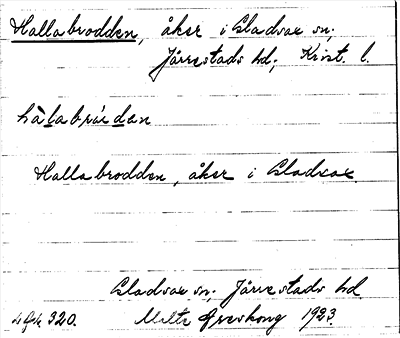 Hallabrodden, åker i Gladsax sn;
Järrestads hd; Krist. l.
hàlabrɷ́dan
Hallabrodden, åker i Gladsax.
Gladsax sn; Järrestads hd.
320. Malte 1923.